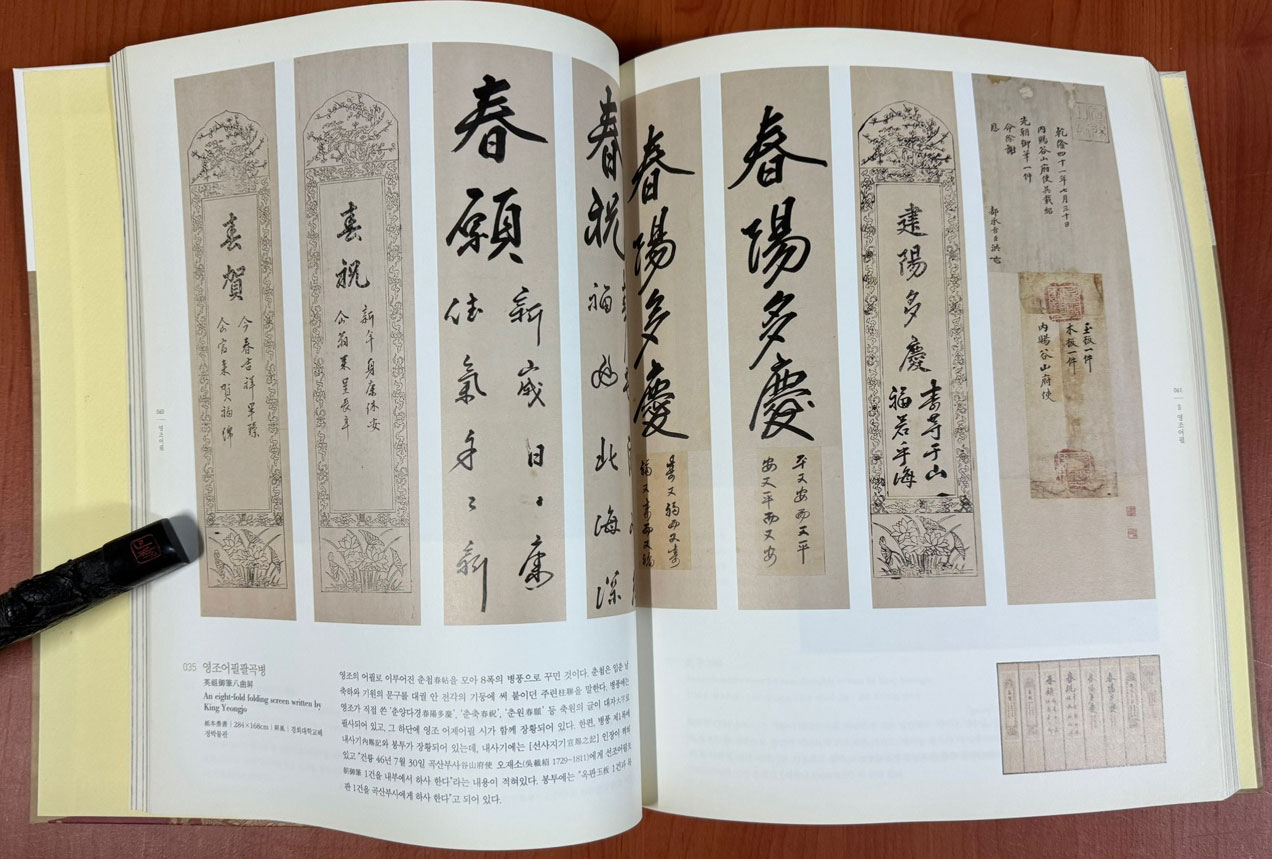 春賀
今春吉祥早臻
春祝
新年身康體安
春願
新歲日〻康
佳氣年〻新
春祝
福如北海深
035 영조어필팔곡병
英祖御筆八曲屛
An eight-fold folding screen written by
King Yeongjo
紙本墨書 | 284×168cm | 屛風 | 경희대학교혜
정박물관
영조의 어필로 이루어진 춘첩春帖을 모아 8폭의 병풍으로 꾸민 것이다. 춘첩은 입춘 날
축하와 기원의 문구를 대궐 안 전각의 기둥에 써 붙이던 주련柱聯을 말한다. 병풍에는
영조가 직접 쓴 '춘양다경春陽多慶', '춘축春祝', '춘원春願' 등 축원의 글이 대자大字로
필사되어 있고, 그 하단에 영조 어제어필 시가 함께 장황되어 있다. 한편, 병풍 제1폭에
내사기內賜記와 봉투가 장황되어 있는데, 내사기에는 [선사지기宣賜之記] 인장이 찍혀
있고 "건륭 46년 7월 30일 곡산부사谷山府使 오재소(吳載紹 1729~1811)에게 선조어필先
朝御筆 1건을 내부에서 하사 한다"라는 내용이 적혀있다. 봉투에는 "옥판玉板 1건과 목
판 1건을 곡산부사에게 하사 한다"고 되어 있다.
040 | 영조어필
春陽多慶
壽又福而又壽
福又壽而又福
春陽多慶
平又安而又平
安又平而又安
建陽多慶
壽等于山
福若乎海
乾隆四十一年七月三十日
內賜谷山府使吳載紹
先朝御筆一件
命除謝
恩
都承旨臣洪
玉板一件
木板一件
內賜谷山府使
041 | 3 영조어필